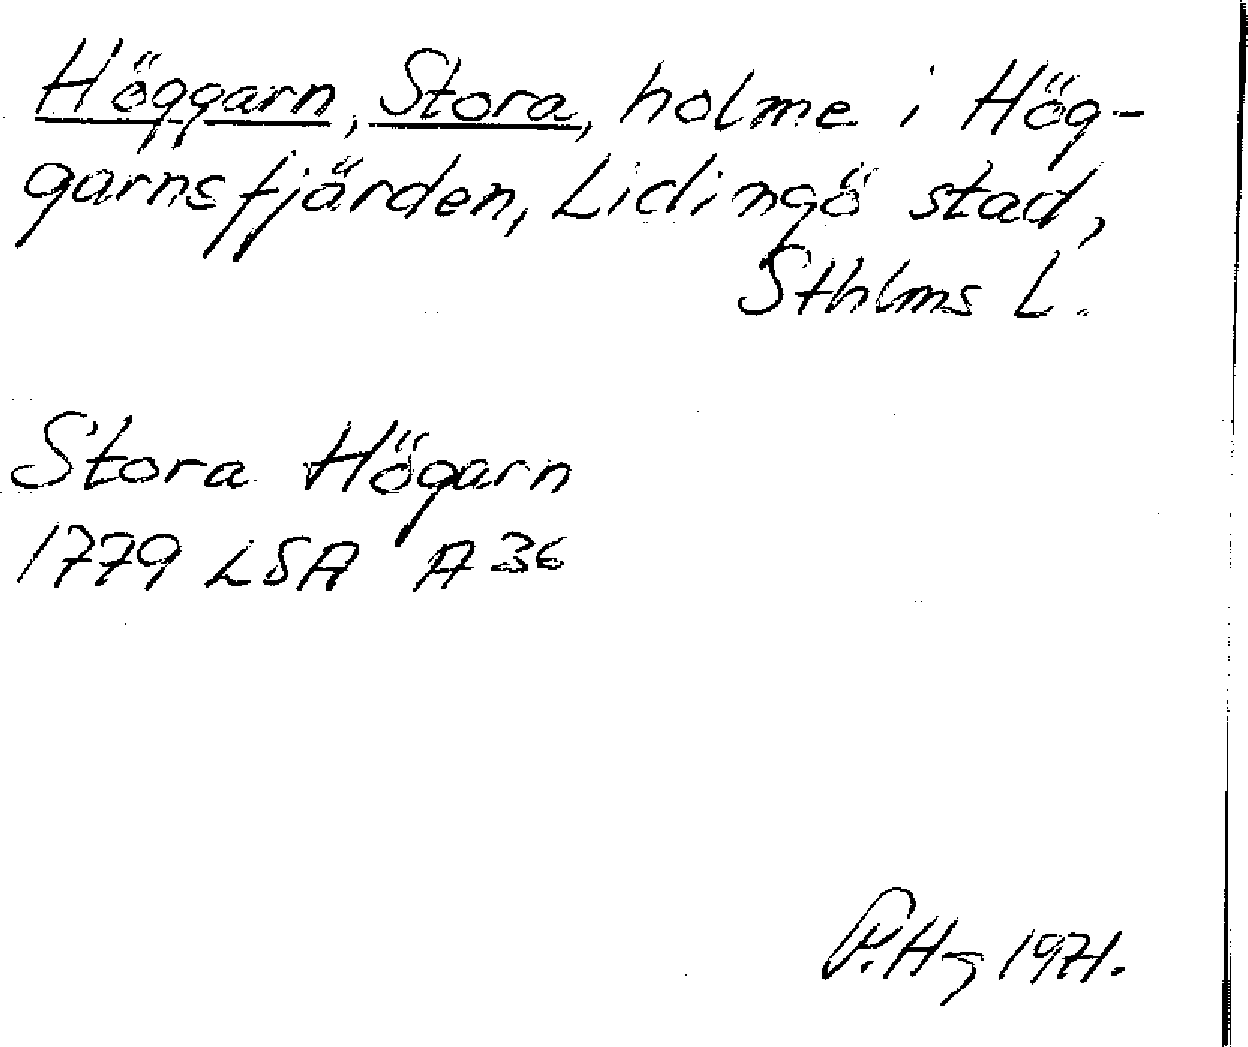 Höggarn, Stora, holme i Hög-
garnsfjärden, Lidingö stad,
Sthlms L.
Stora Högarn
1779 LSA A 36
P.Hg 1971.